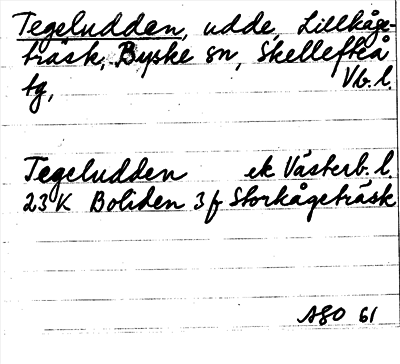 Tegeludden, udde, Lillkåge-
träsk, Byske sn, Skellefteå
tg, Vb. l.
Tegeludden ek Västerb. l.
23 K Boliden 3 f Storkågeträsk
ASO 61